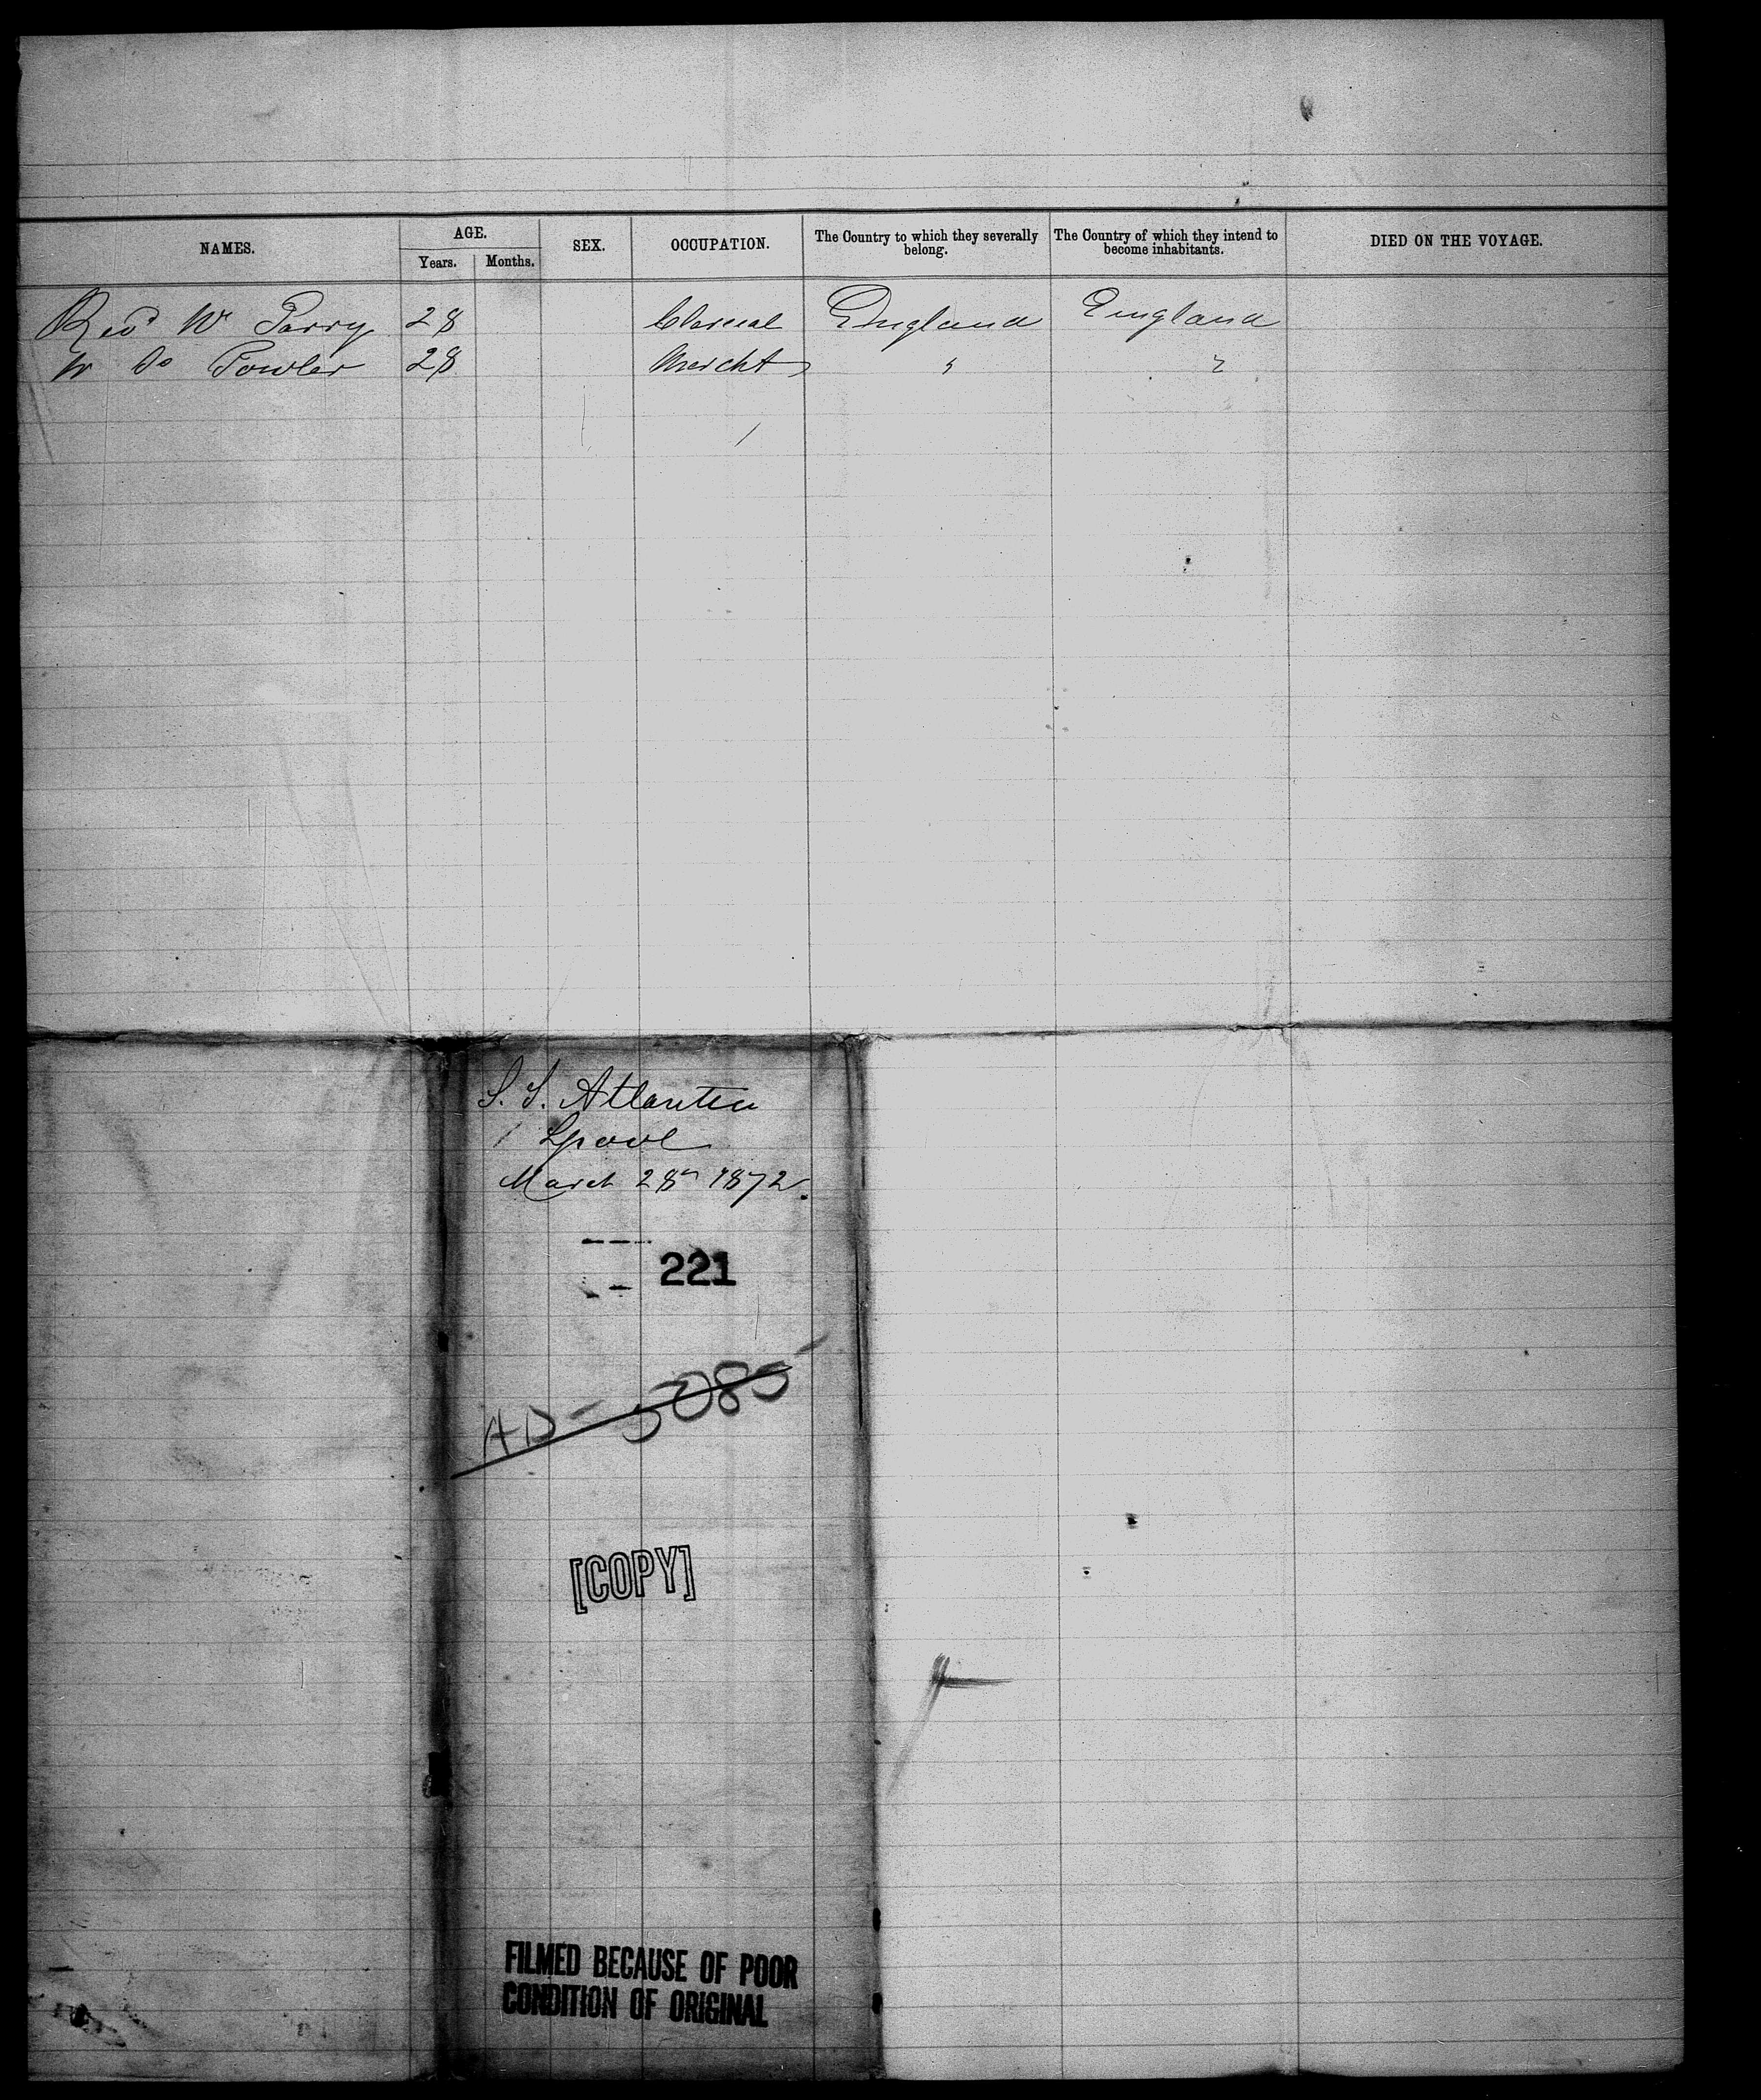 NAMES. AGE. SEX. OCCUPATION. The Country to which they severally belong. The Country of which they intend to become inhabitants. DIED ON THE VOYAGE.
Years. Months.
Revd W Parry 28 Clerical England England
W Fowler 28 Mercht " "
S. S. Atlantic
Lpool
March 28th 1872.
221
AD-5085
[COPY]
FILMED BECAUSE OF POOR
CONDITION OF ORIGINAL